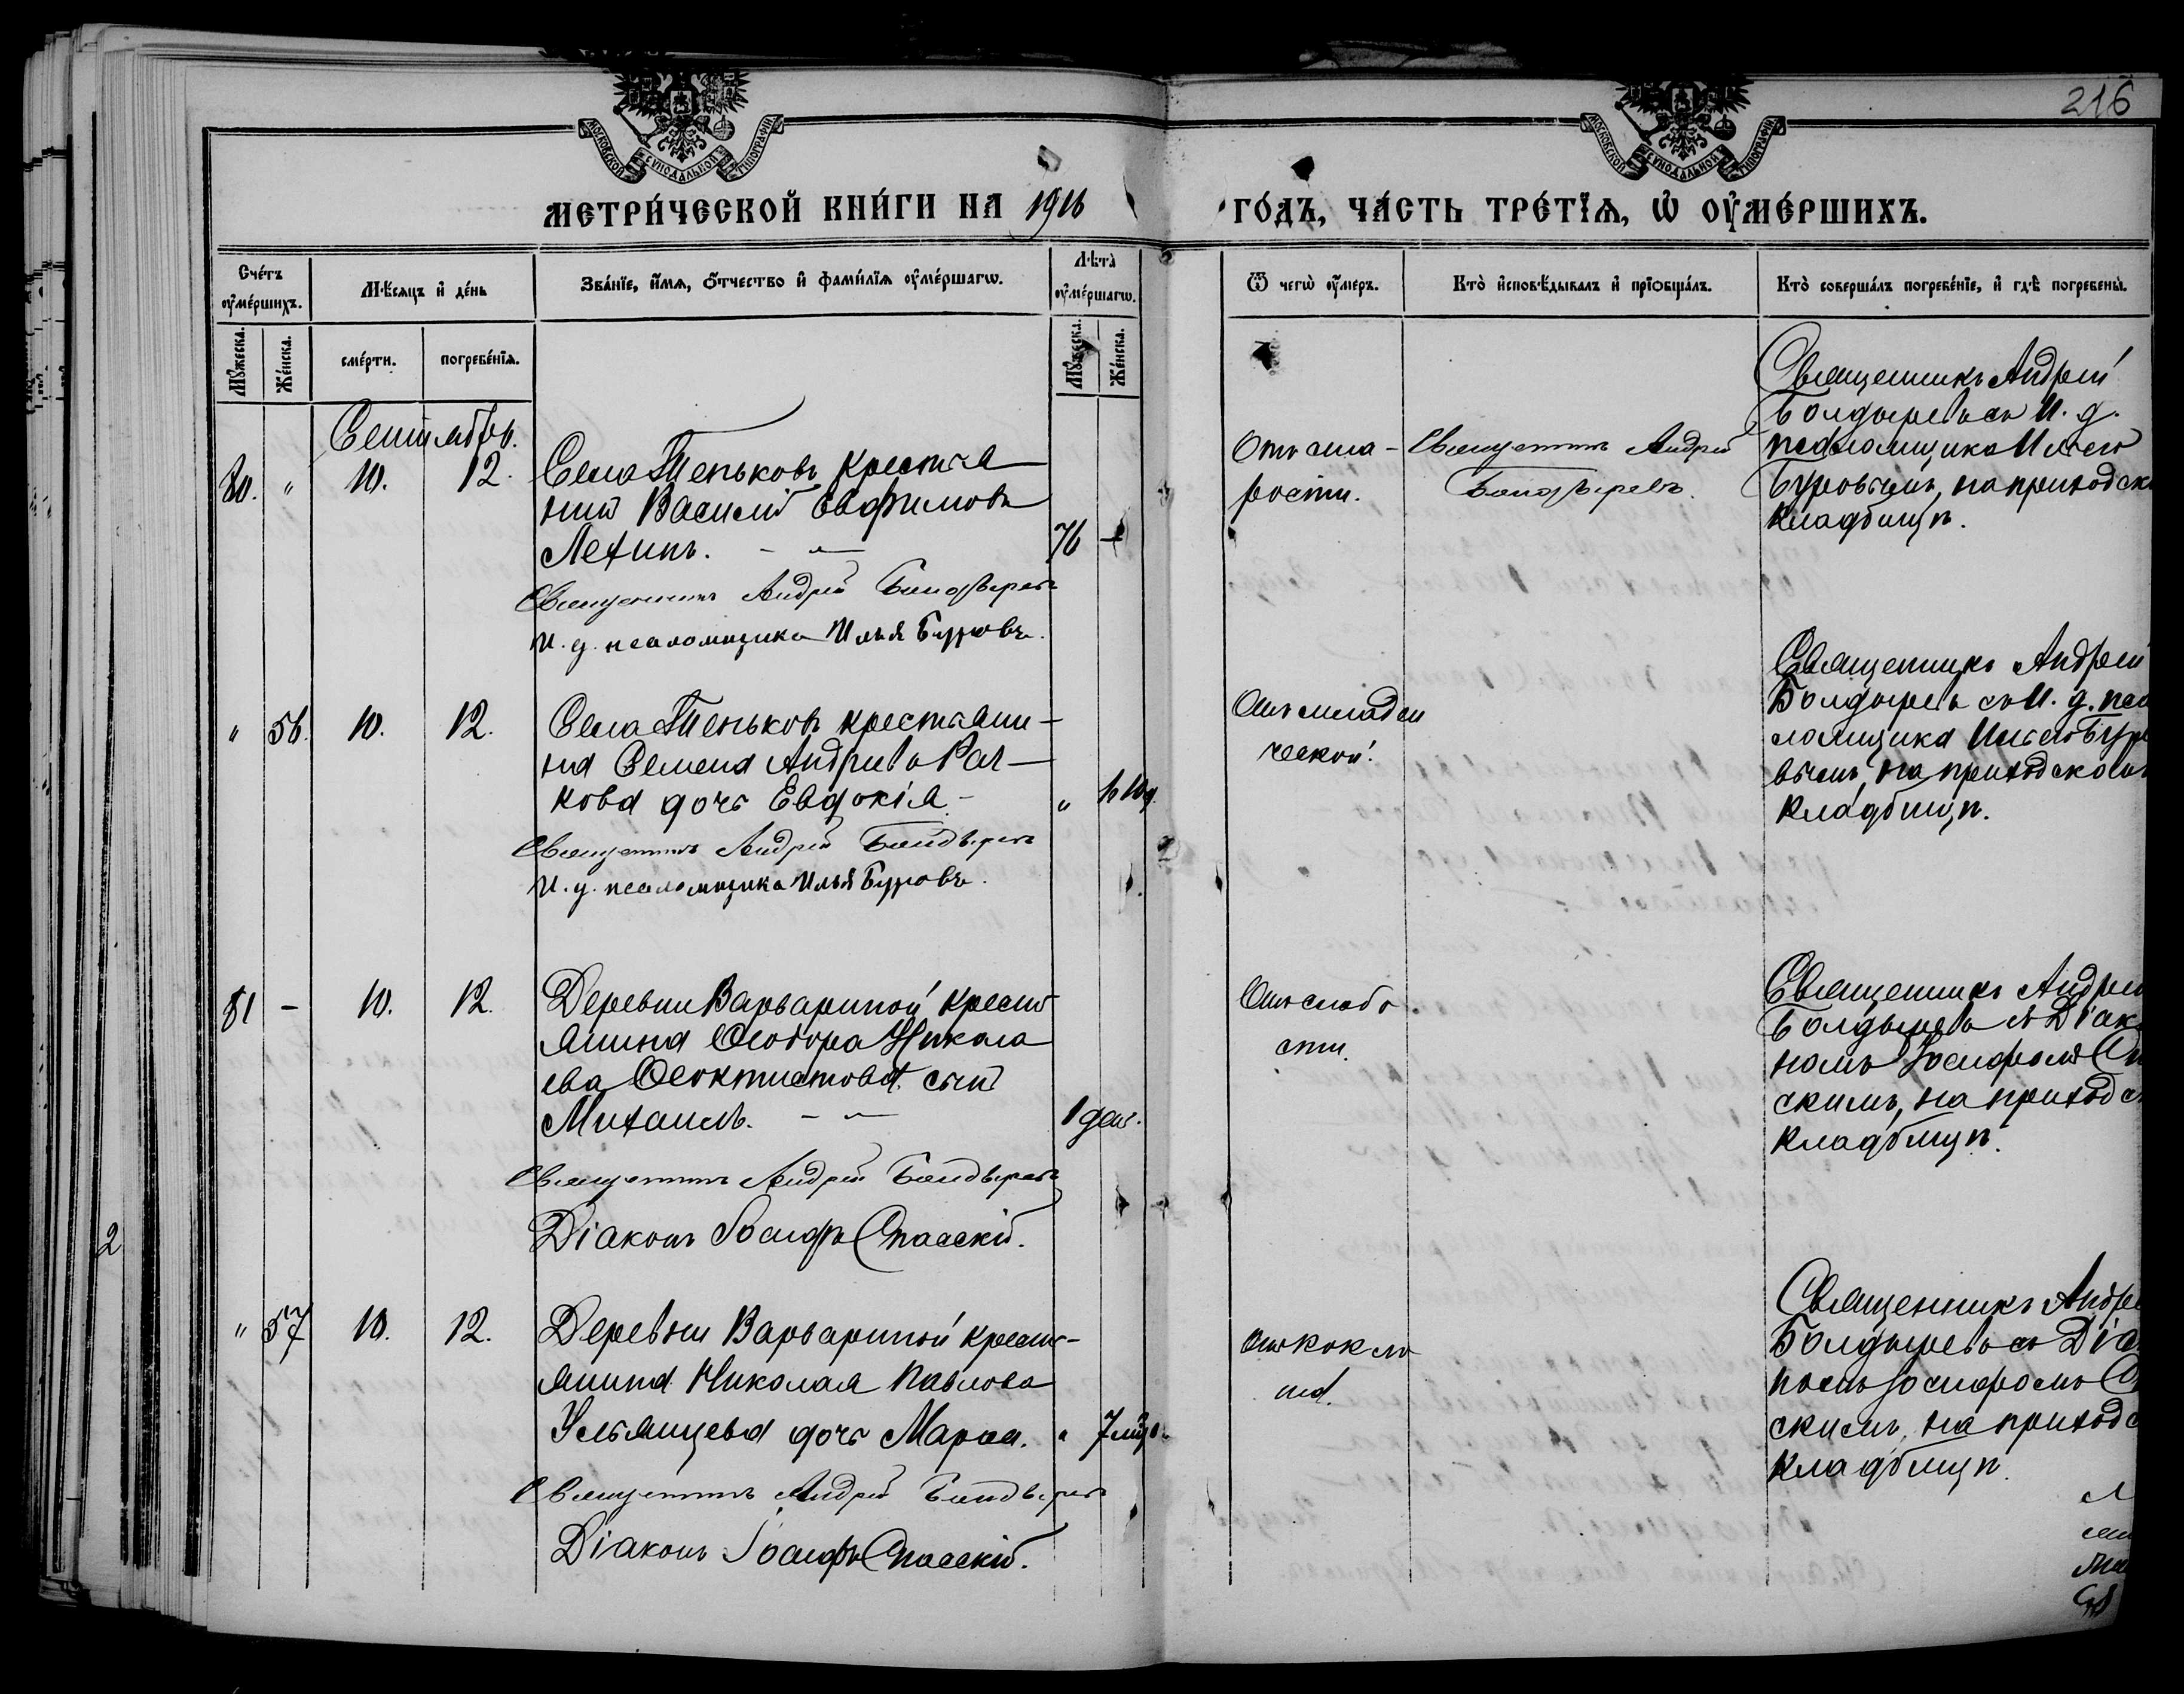 216
МОСКОВСКОЙ СѴНОДАЛЬНОЙ ТИПОГРАФІИ
МОСКОВСКОЙ СѴНОДАЛЬНОЙ ТИПОГРАФІИ
МЕТРИ́ЧЕСКОЙ КНИ́ГИ НА 1916 ГО́ДЪ, ЧА́СТЬ ТРЕ́ТЇѦ, Ѡ҆ ОУ҆МЕ́РШИХЪ.
Сче́тъ оу҆ме́ршихъ.
Мѣ́сѧцъ и҆ де́нь
Зва́нїе, и҆́мѧ, ѻ҆́тчество и҆ фами́лїѧ оу҆ме́ршагѡ.
Лѣ́та оу҆ме́ршагѡ.
Ѿ чегѡ̀ оу҆́меръ.
Кто̀ и҆сповѣ́дывалъ и҆ прїѡбща́лъ.
Кто̀ соверша́лъ погребе́нїе, и҆ гдѣ̀ погребены̀.
Мꙋ́жеска.
Же́нска.
сме́рти.
погребе́нїѧ.
Мꙋ́жеска.
Же́нска.
Сентябрь.
80. " 10. 12.
Села Теньковъ крестья
нинъ Василій Евфимовъ
Лехинъ. - — 76 —
Священникъ Андрей Болдыревъ
И. д. псаломщика Илья Буровъ.
Отъ ста-
рости.
Священникъ Андрей
Болдыревъ.
Священникъ Андрей
Болдыревъ съ И. д.
псаломщика Ильею
Буровымъ, на приходск
кладбищѣ.
" 56. 10. 12.
Села Теньковъ крестьяни-
на Семена Андреева
кова дочь Евдокія - "
Священникъ Андрей Болдыревъ
И. д. псаломщика Илья Буровъ.
Отъ младен
ческой.
Священникъ Андрей
Болдыревъ съ И. д. пса
ломщика Ильею Буро
вымъ, на приходскомъ
кладбищѣ.
81 - 10. 12.
Деревни Варвариной крест
янина Ѳеодора Никола
ева Ѳеоктистова сынъ
Михаилъ. - — 1 дня.
Священникъ Андрей Болдыревъ
Діаконъ Іосифъ Спасскій.
Отъ слабо
сти.
Священникъ Андрей
Болдыревъ съ Діак
номъ Іосифомъ Сп
скимъ, на приходс
кладбищѣ.
" 57 10. 12.
Деревни Варвариной крест-
янина Николая Павлова
Ульянцева дочь Марія. "
Священникъ Андрей Болдыревъ
Діаконъ Іосифъ Спасскій.
отъ коклю
ша.
Священникъ Андре
Болдыревъ съ Діа
номъ Іосифомъ С
скимъ, на приходс
кладбищѣ.
2